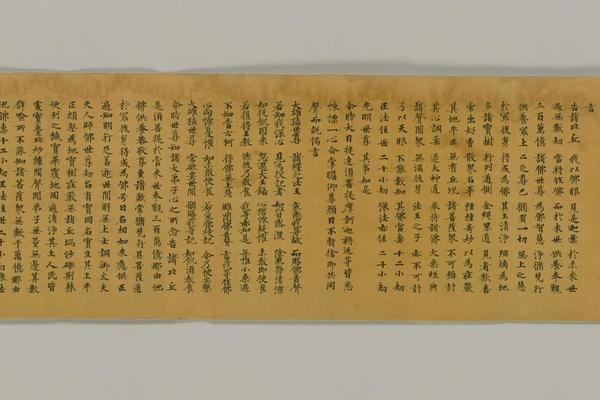 言
告諸比丘 我以佛眼 見是迦葉 於未來世
過無數劫 當得作佛 而於來世 供養奉覲
三百萬億 諸佛世尊 為佛智慧 淨修梵行
供養最上 二足尊已 修習一切 無上之慧
於最後身 得成為佛 其土清淨 瑠璃為地
多諸寶樹 行列道側 金繩界道 見者歡喜
常出好香 散眾名華 種種奇妙 以為莊嚴
其地平正 無有丘坑 諸菩薩眾 不可稱計
其心調柔 逮大神通 奉持諸佛 大乘經典
諸聲聞眾 無漏後身 法王之子 亦不可計
乃以天眼 不能數知 其佛當壽 十二小劫
正法住世 二十小劫 像法亦住 二十小劫
光明世尊 其事如是
尒時大目揵連須菩提摩訶迦旃延等皆悉
悚慄一心合掌瞻仰尊顏目不暫捨即共同
聲而說偈言
大雄猛世尊 諸釋之法王 哀愍我等故 而賜佛音聲
若知我深心 見為授記者 如以甘露灑 除熱得清涼
如從飢國來 忽遇大王饍 心猶懷疑懼 未敢即便食
若復得王教 然後乃敢食 我等亦如是 每惟小乘過
不知當云何 得佛無上慧 雖聞佛音聲 言我等作佛
心尚懷憂懼 如未敢便食 若蒙佛授記 尒乃快安樂
大雄猛世尊 常欲安世間 願賜我等記 如飢須教食
尒時世尊知諸大弟子心之所念告諸比丘
是須菩提於當來世奉覲三百萬億那由他
佛供養恭敬尊重讚歎常修梵行具菩薩道
於最後身得成為佛号曰名相如來應供正
遍知明行足善逝世間解無上士調御丈夫
天人師佛世尊劫名有寶國名寶生其土平
正頗梨為地寶樹莊嚴無諸丘坑沙礫荊棘
便利之穢寶華覆地周遍清淨其土人民皆
處寶臺珍妙樓閣聲聞弟子無量無邊筭數
譬喻所不能知諸菩薩眾無數千萬億那由
他佛壽十二小劫正法住世二十小劫像法